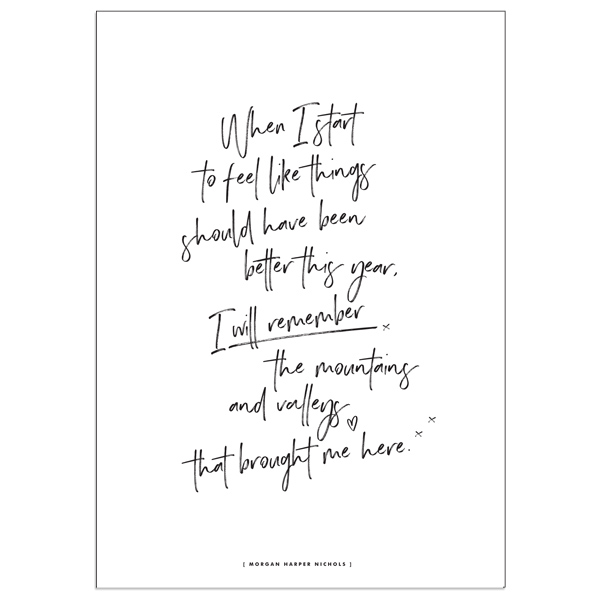 When I start
to feel like things
should have been
better this year,
I will remember
the mountains
and valleys
that brought me here.
[ MORGAN HARPER NICHOLS ]